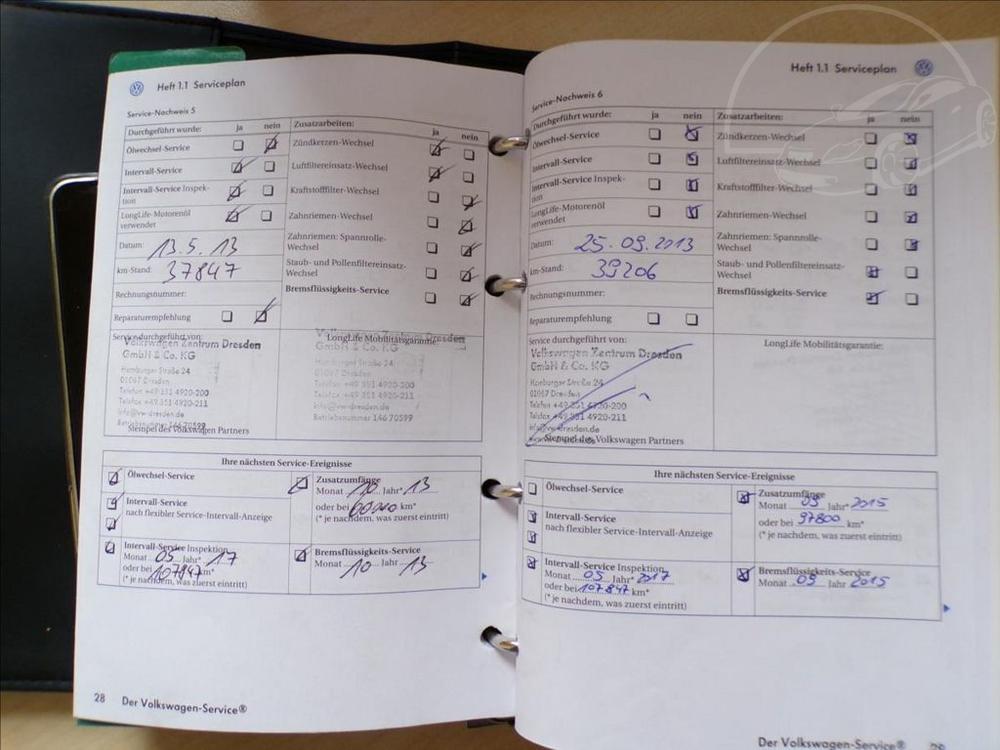 Heft 1.1 Serviceplan
Service-Nachweis 5
Durchgeführt wurde: ja nein Zusatzarbeiten: ja nein
Ölwechsel-Service
Zündkerzen-Wechsel
Intervall-Service
Luftfiltereinsatz-Wechsel
Intervall-Service Inspek-
tion
Kraftstofffilter-Wechsel
LongLife-Motorenöl
verwendet
Zahnriemen-Wechsel
Datum: 13.5.13
Zahnriemen: Spannrolle-
Wechsel
km-Stand: 37847
Staub- und Pollenfiltereinsatz-
Wechsel
Rechnungsnummer:
Bremsflüssigkeits-Service
Reparaturempfehlung
Service durchgeführt von:
LongLife Mobilitätsgarantie:
Volkswagen Zentrum Dresden
GmbH & Co. KG
Hamburger Straße 24
01067 Dresden
Telefon +49 351 4920-200
Telefax +49 351 4920-211
info@vw-dresden.de
Betriebsnummer 146 70599
Stempel des Volkswagen Partners
Volkswagen Zentrum Dresden
GmbH & Co. KG
Hamburger Straße 24
01067 Dresden
Telefon +49 351 4920-200
Telefax +49 351 4920-211
info@vw-dresden.de
Betriebsnummer 146 70599
Ihre nächsten Service-Ereignisse
Ölwechsel-Service
Intervall-Service
nach flexibler Service-Intervall-Anzeige
Intervall-Service Inspektion
Monat 05 Jahr* 17
oder bei 107847 km*
(* je nachdem, was zuerst eintritt)
Zusatzumfänge
Monat 10 Jahr* 13
oder bei 60000 km*
(* je nachdem, was zuerst eintritt)
Bremsflüssigkeits-Service
Monat 10 Jahr 13
28 Der Volkswagen-Service®
Heft 1.1 Serviceplan
Service-Nachweis 6
Durchgeführt wurde: ja nein Zusatzarbeiten: ja nein
Ölwechsel-Service
Zündkerzen-Wechsel
Intervall-Service
Luftfiltereinsatz-Wechsel
Intervall-Service Inspek-
tion
Kraftstofffilter-Wechsel
LongLife-Motorenöl
verwendet
Zahnriemen-Wechsel
Datum: 25.09.2013
Zahnriemen: Spannrolle-
Wechsel
km-Stand: 39206
Staub- und Pollenfiltereinsatz-
Wechsel
Rechnungsnummer:
Bremsflüssigkeits-Service
Reparaturempfehlung
Service durchgeführt von:
LongLife Mobilitätsgarantie:
Volkswagen Zentrum Dresden
GmbH & Co. KG
Hamburger Straße 24
01067 Dresden
Telefon +49 351 4920-200
Telefax +49 351 4920-211
info@vw-dresden.de
Stempel des Volkswagen Partners
Ihre nächsten Service-Ereignisse
Ölwechsel-Service
Intervall-Service
nach flexibler Service-Intervall-Anzeige
Intervall-Service Inspektion
Monat 05 Jahr* 2017
oder bei 107847 km*
(* je nachdem, was zuerst eintritt)
Zusatzumfänge
Monat 09 Jahr* 2015
oder bei 97800 km*
(* je nachdem, was zuerst eintritt)
Bremsflüssigkeits-Service
Monat 09 Jahr 2015
Der Volkswagen-Service®